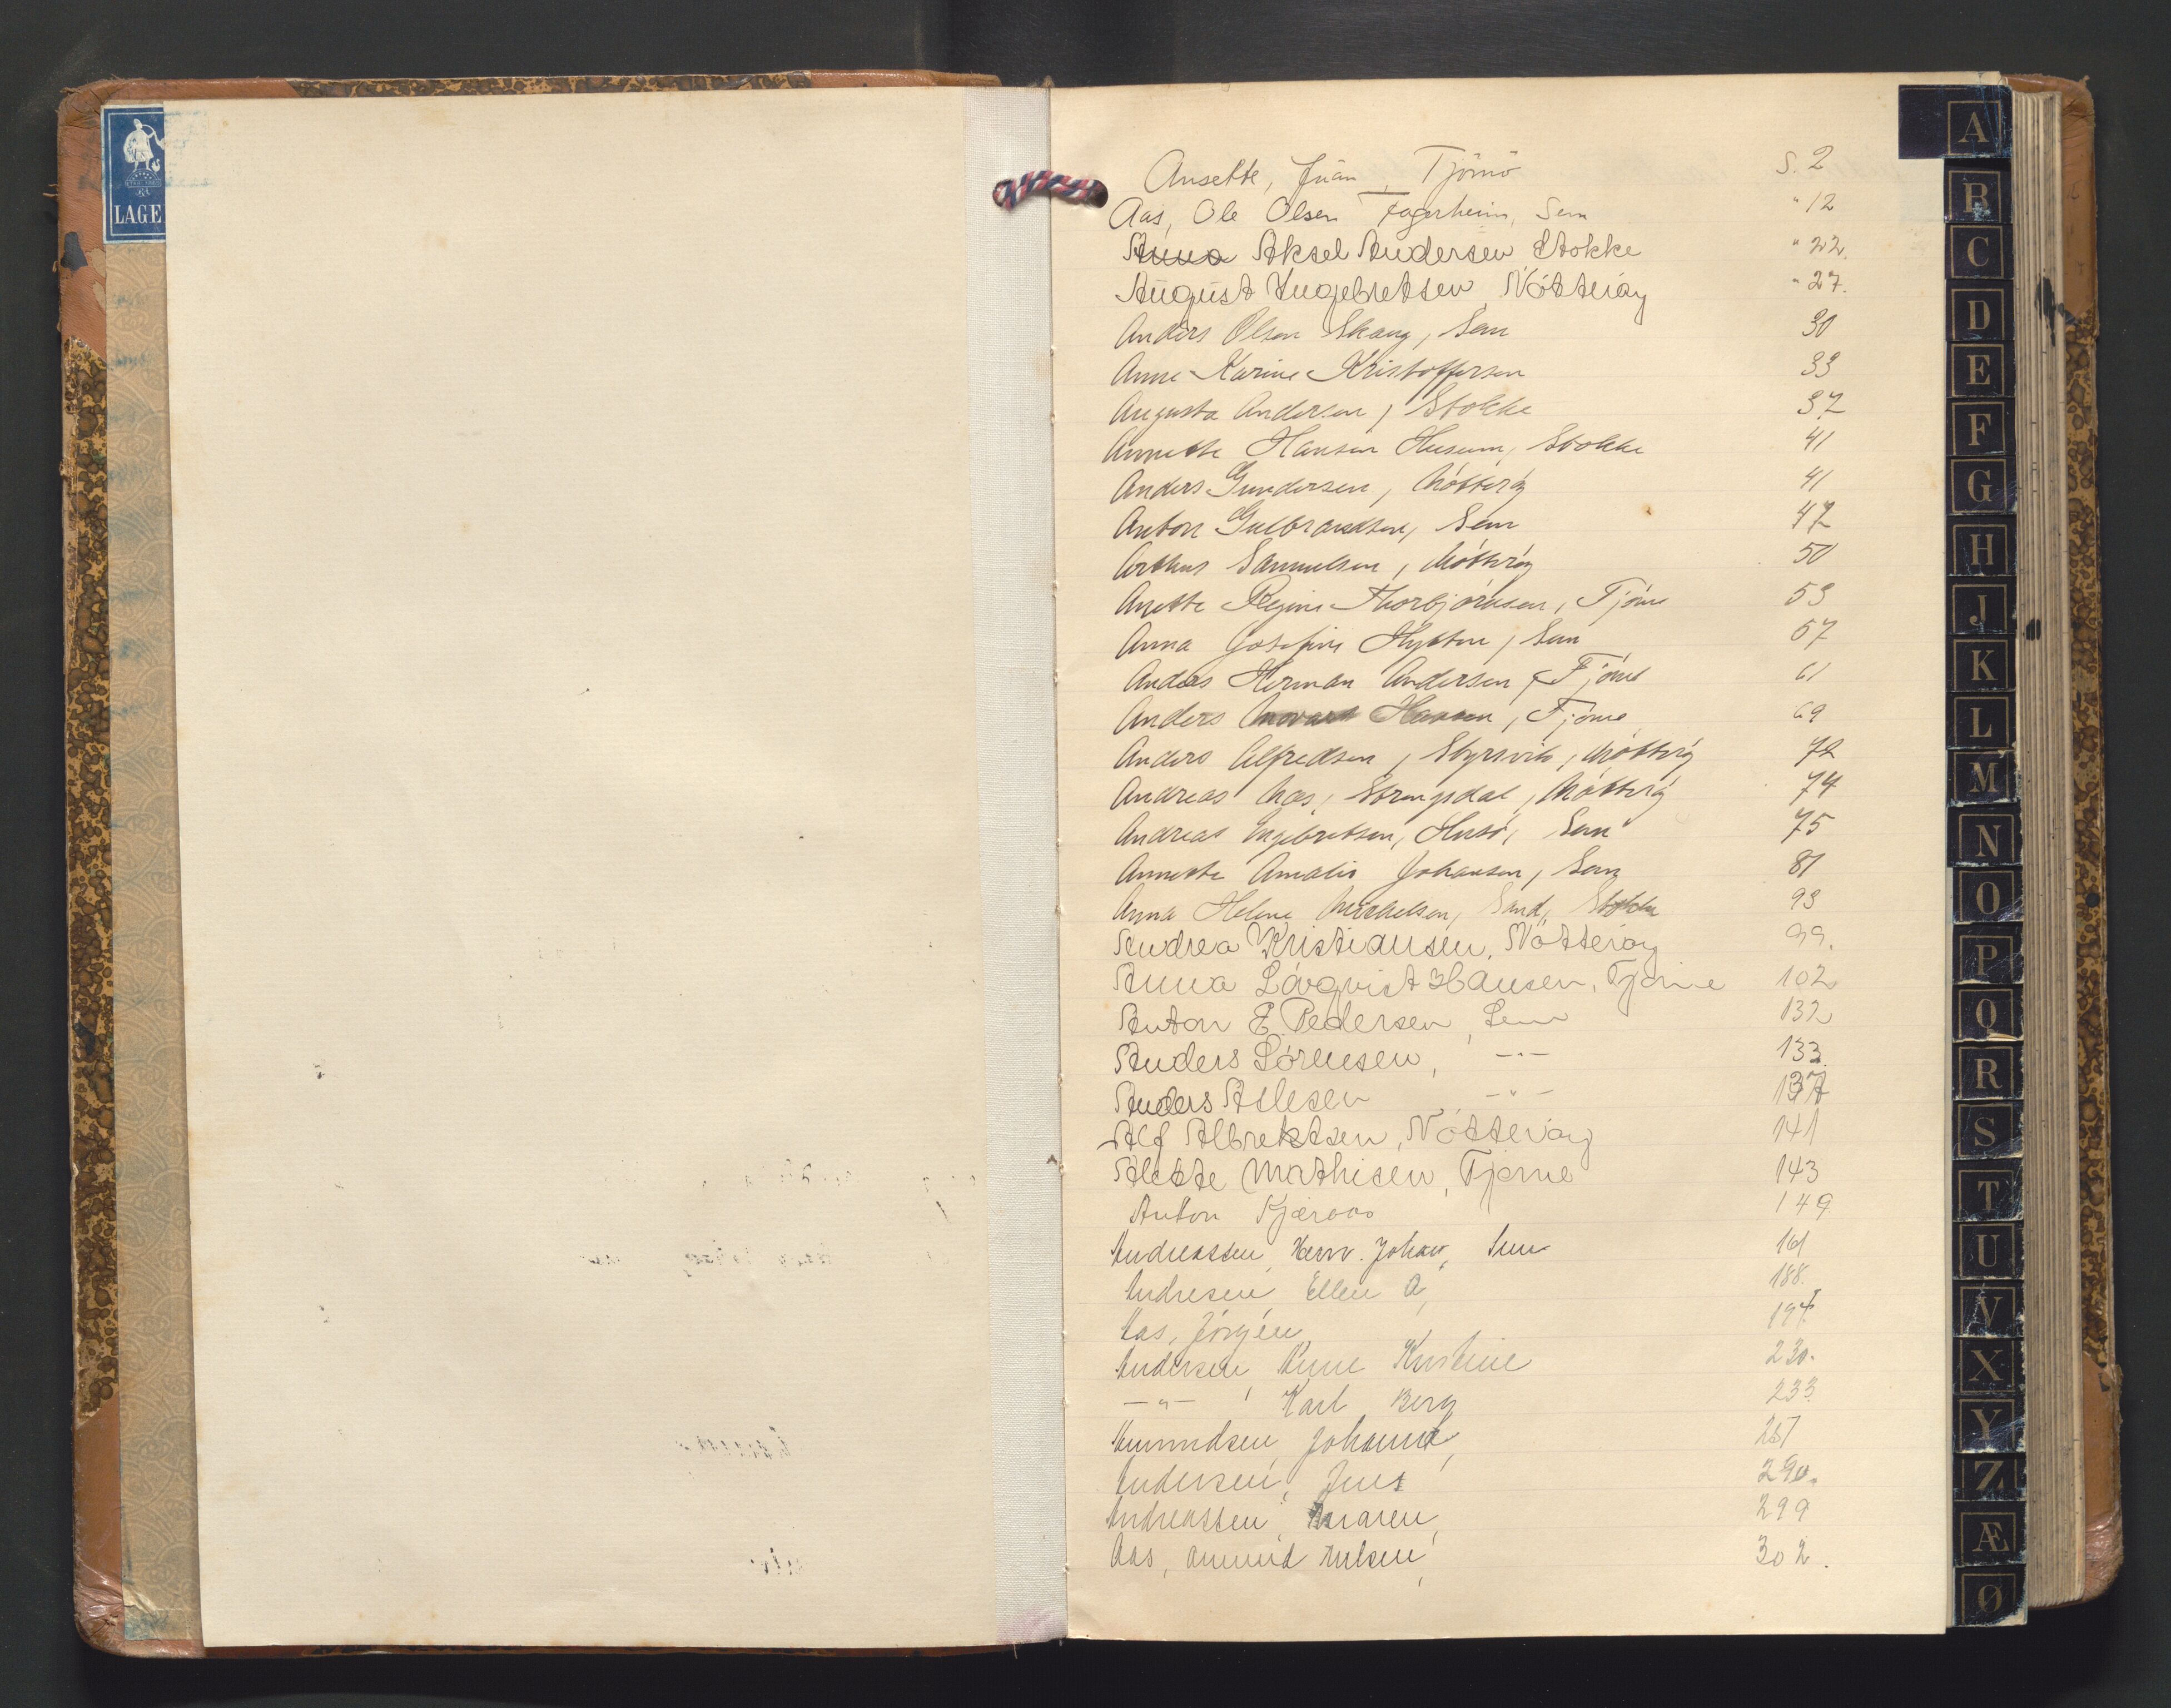 LAGE
Ansette, Juan, Tjömö S. 2
Aas, Ole Olsen Fagerheim, Sem " 12
Anna Aksel Andersen Stokke " 22.
August Ingebretsen, Nötteröy " 27.
Anders Olsen Skaug, Sem 30
Anne Karine Kristoffersen 33
Augusta Andersen, Stokke 37
Annette Hansen Husum, Stokke 41
Anders Gundersen, Nötteröy 41
Anton Gulbrandsen, Sem 47
Arthur Samuelsen, Nötteröy 50
Anette Regine Thorbjörnsen, Tjöme 53
Anna Josefine Hytten, Sem 57
Anders Herman Andersen, Tjöme 61
Anders Hansen, Tjöme 69
Anders Alfredsen, Styrsvik, Nötteröy 72
Andreas Næs, Strengsdal, Nötteröy 74
Andreas Ingebretsen, Husö, Sem 75
Annette Amalie Johansen, Sem 81
Anna Helene Mikkelsen, Sand, Stokke 93
Andrea Kristiansen, Nötteröy 99.
Anna Lövqvist Hansen, Tjöme 102
Anton E. Pedersen, Sem 132
Anders Sörensen, -"- 133.
Anders Aslesen -"- 137
Alf Albrektsen, Nötteröy 141
Alette Mathisen, Tjöme 143
Anton Kjæraas 149
Andreassen, Herm. Johan, Sem 161
Andresen, Ellen A, 188.
Aas, Jörgen, 197
Andersen Anne Kristine 230.
-"- , Karl Berg 233.
Amundsen, Johanna, 257
Andersen, Jens 290.
Andreassen, Maren, 299
Aas, Amund Nilsen, 302.
A
B
C
D
E
F
G
H
J
K
L
M
N
O
P
Q
R
S
T
U
V
X
Y
Z
Æ
Ø